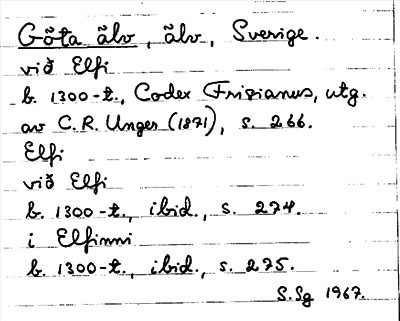 Göta älv, älv, Sverige.
við Elfi
b. 1300-t., Codex Frisianus, utg.
av C.R. Unger (1871), s. 266.
Elfi
við Elfi
b. 1300-t., ibid., s. 274.
i Elfinni
b. 1300-t., ibid., s. 275.
S.Sg 1967.